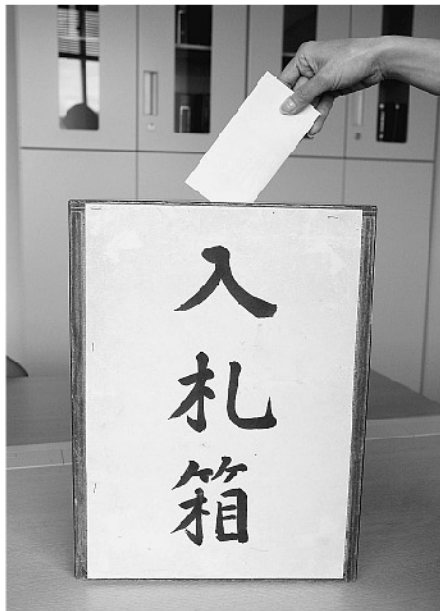 入札箱